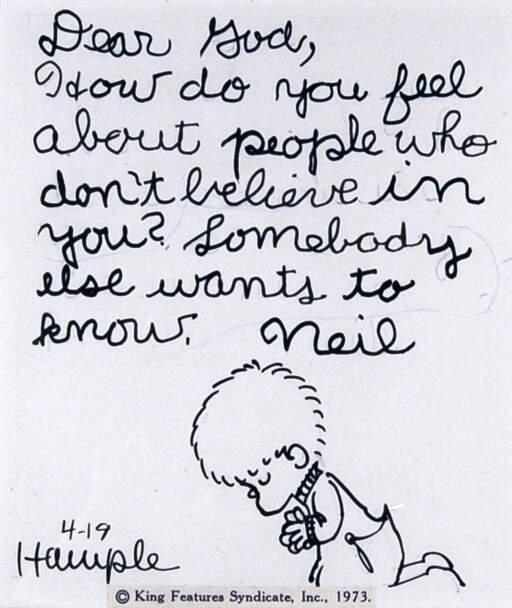 Dear God,
How do you feel
about people who
don't believe in
you? Somebody
else wants to
know. Neil
4-19
Hample
© King Features Syndicate, Inc., 1973.